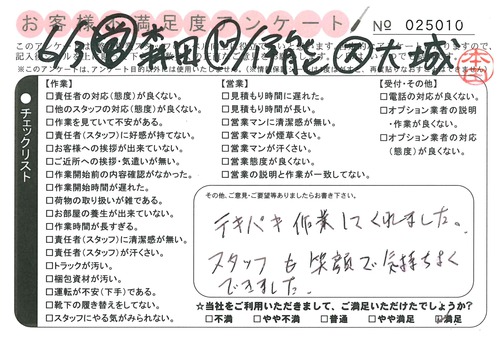 お客様の満足度アンケート
№ 025010
チェックリスト
【作業】
□責任者の対応(態度)が良くない。
□他のスタッフの対応(態度)が良くない。
□作業を見ていて不安がある。
□責任者(スタッフ)に好感が持てない。
□お客様への挨拶が出来ていない。
□ご近所への挨拶・気遣いが無い。
□作業開始前の内容確認がなかった。
□作業開始時間が遅れた。
□荷物の取り扱いが雑である。
□お部屋の養生が出来ていない。
□作業時間が長すぎる。
□責任者(スタッフ)に清潔感が無い。
□責任者(スタッフ)が汗くさい。
□トラックが汚い。
□梱包資材が汚い。
□運転が不安(下手)である。
□靴下の履き替えをしてない。
□スタッフにやる気がみられない。
【営業】
□見積もり時間に遅れた。
□見積もり時間が長い。
□営業マンに清潔感が無い。
□営業マンが煙草くさい。
□営業マンが汗くさい。
□営業態度が良くない。
□営業の説明と作業が一致してない。
【受付・その他】
□電話の対応が良くない。
□オプション業者の説明
・作業が良くない。
□オプション業者の対応
(態度)が良くない。
その他、ご意見・ご要望等ありましたらお書き下さい。
テキパキ作業してくれました。
スタッフも笑顔で気持ちよく
できました。
☆当社をご利用いただきまして、ご満足いただけたでしょうか?
□不満 □やや不満 □普通 □やや満足 ☑満足